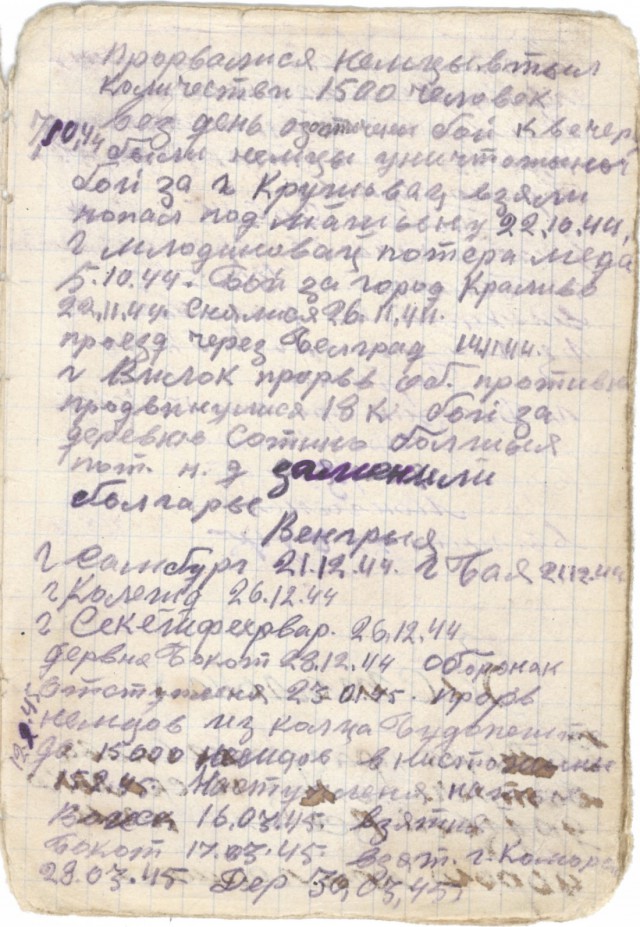 Прорвалися немцы в тыл
количестви 1500 человек
весь день озосточени бой к вечер
7,10,44 были немцы уничтожены
бой за г Крушовац взяли
попал под машыну 22.10.44,
г Млодиновац потера меда
5.10.44. Бой за город Кралиево
22.11.44. Снялися 26.11.44.
проезд через Белград 14.11.44.
г Вилок прорвв об. противн
продвинулися 18 к бой за
деревню Сотино болшыя
пот. н. д заменили
болгары
Венгрыя
г Самбург 21.12.44. г Бая 21.12.44
г Колежд 26.12.44
г Секешфехрвар. 26.12.44
дервня Бокот 28.12.44 оборонак
отступленя 23.01.45. прорв
немцов из колца Будопешт
12.2.45 до 15000 немцов
Наступленя
Войск 16.03.45. взятия
Бокот 17.03.45. взят. г. Комора
28.03.45 Дер 30,03,45.